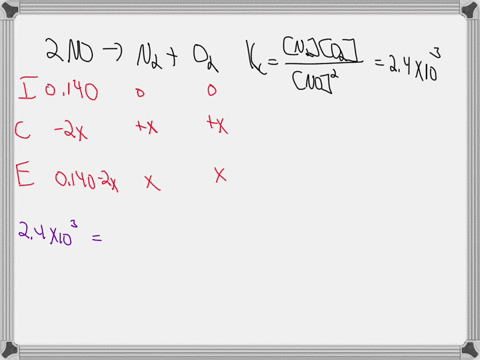 2NO → N₂ + O₂ Kc = [N₂][O₂] / [NO]² = 2.4×10³
I 0.140 0 0
C -2x +x +x
E 0.140-2x x x
2.4×10³ =